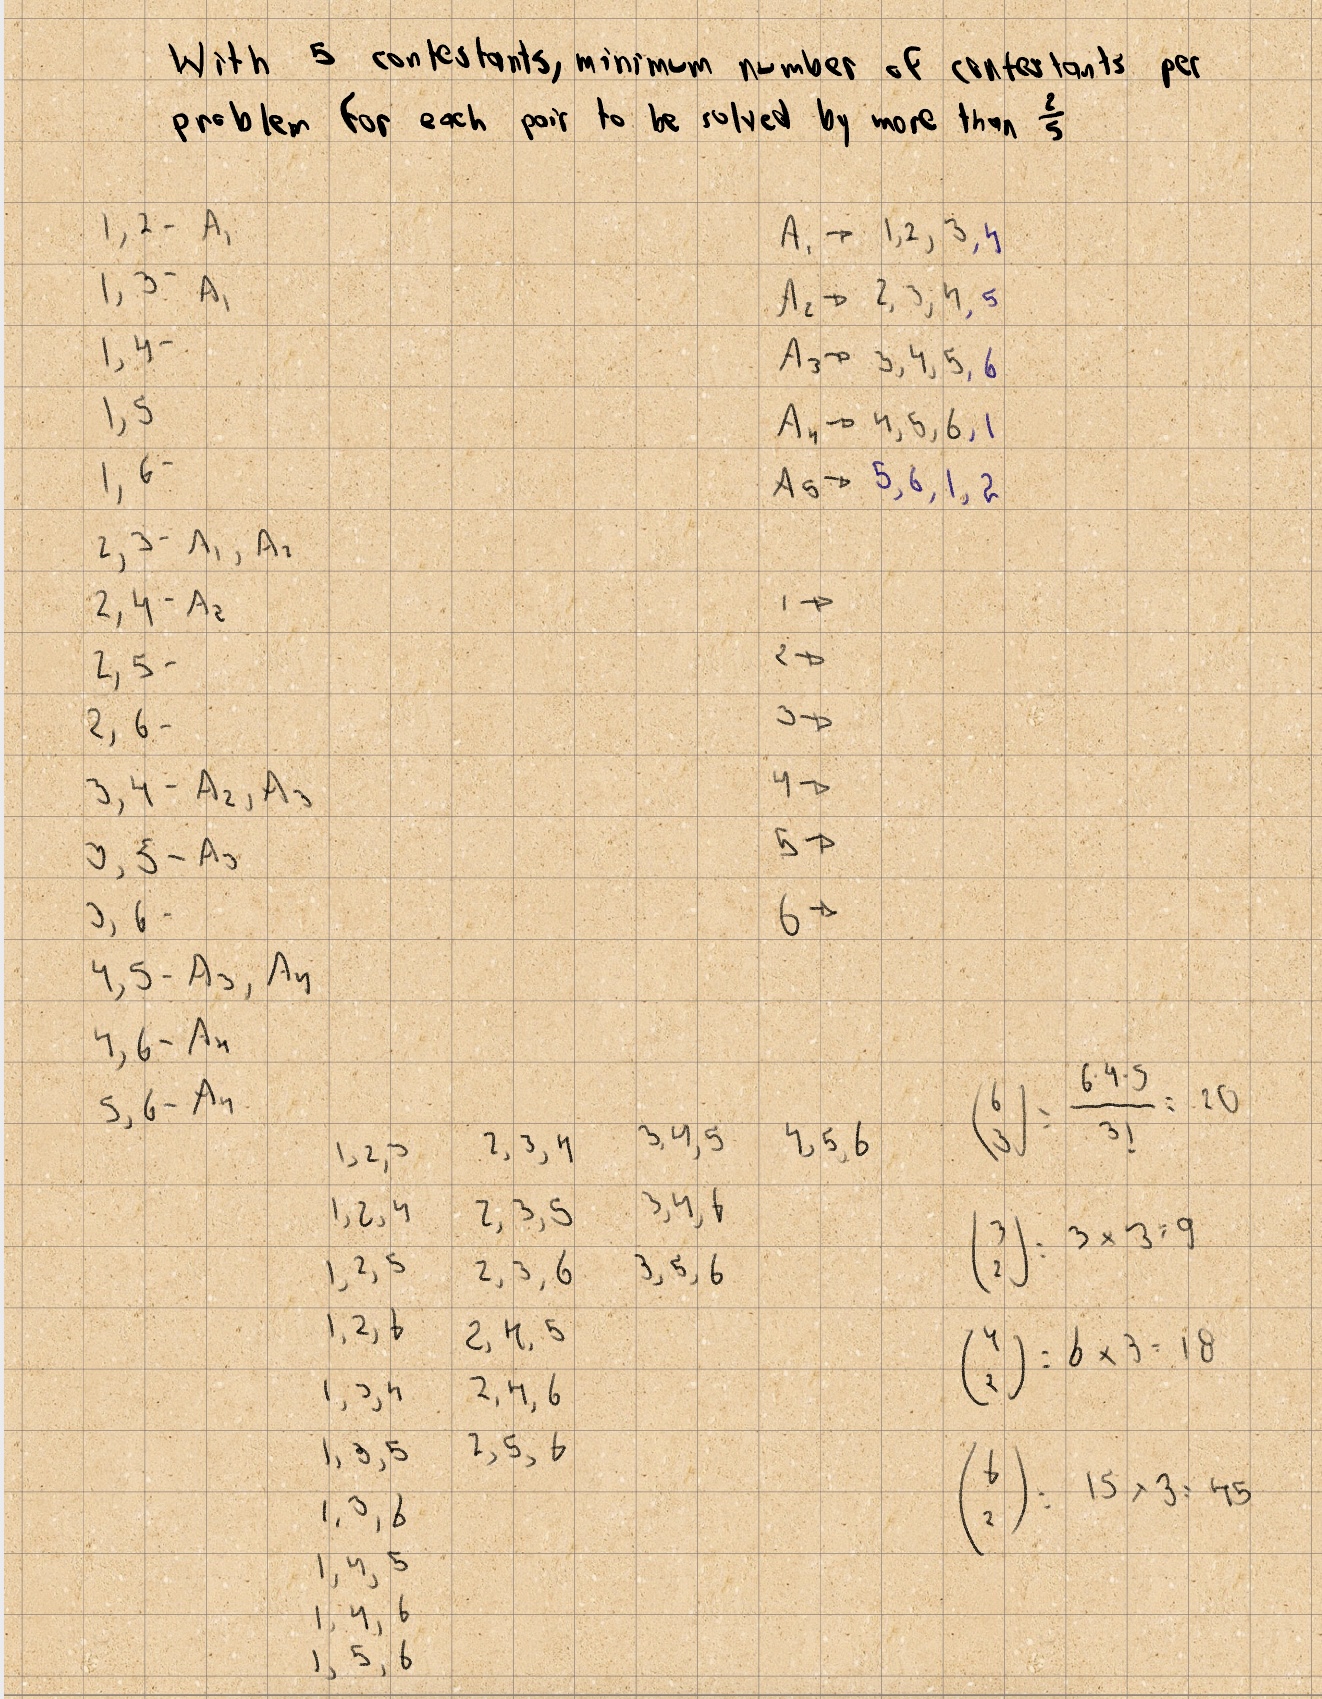 With 5 contestants, minimum number of contestants per
problem for each pair to be solved by more than 2/5
1,2- A₁
1,3- A₁
1,4-
1,5
1,6-
2,3- A₁, A₂
2,4- A₂
2,5-
2,6-
3,4- A₂, A₃
3,5- A₃
3,6-
4,5- A₃, A₄
4,6- A₄
5,6- A₄
A₁→ 1,2,3,4
A₂→ 2,3,4,5
A₃→ 3,4,5,6
A₄→ 4,5,6,1
A₅→ 5,6,1,2
1→
2→
3→
4→
5→
6→
1,2,3 2,3,4 3,4,5 4,5,6
1,2,4 2,3,5 3,4,6
1,2,5 2,3,6 3,5,6
1,2,6 2,4,5
1,3,4 2,4,6
1,3,5 2,5,6
1,3,6
1,4,5
1,4,6
1,5,6
(6 3) = 6·4·5/3! = 20
(3 2) = 3×3=9
(4 2) = 6×3=18
(6 2) = 15×3=45